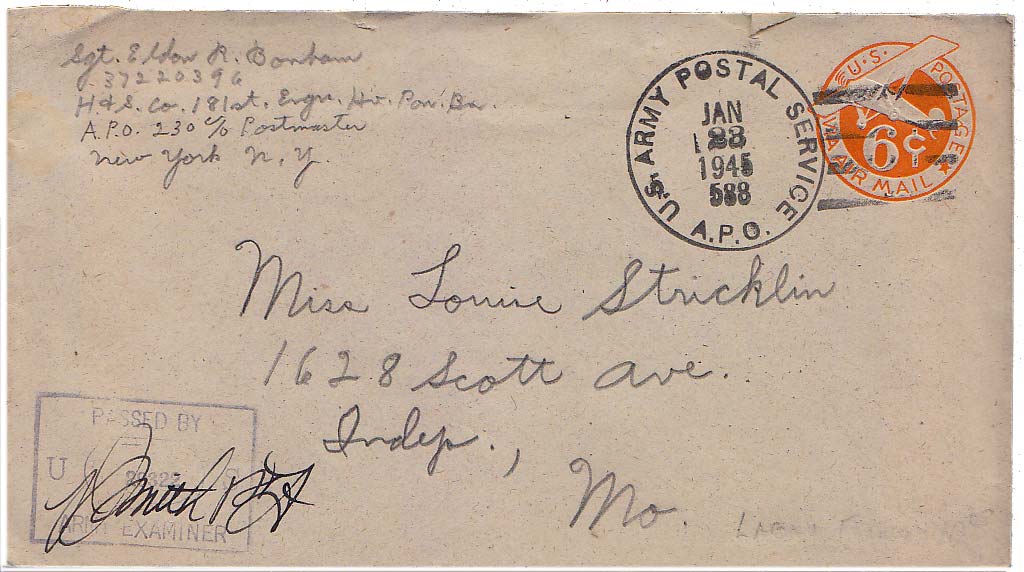 Sgt. Eldon R. Bonham
37220396
H & S. Co. 181st. Engr. Hv. Pon. Bn.
A.P.O. 230 c/o Postmaster
New York N.Y.
U.S. ARMY POSTAL SERVICE
JAN
23
1945
588
A.P.O.
U.S. POSTAGE
6¢
VIA AIR MAIL
Miss Louise Stricklin
1628 Scott Ave.
Indep.,
Mo.
PASSED BY
U S
ARMY EXAMINER